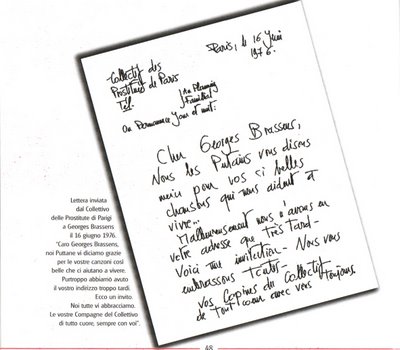 Paris, le 16 Juin
1976.
Collectif des
Prostituées de Paris
Tél.
au Planning
Familial
ou Permanence Jour et nuit:
Cher Georges Brassens,
Nous les Putains vous disons
merci pour vos si belles
chansons qui nous aident à
vivre...
Malheureusement nous n'avons eu
votre adresse que très tard-
Voici une invitation- Nous vous
embrassons toutes-
vos Copines du Collectif
de tout coeur avec vous toujours
Lettera inviata
dal Collettivo
delle Prostitute di Parigi
a Georges Brassens
il 16 giugno 1976.
"Caro Georges Brassens,
noi Puttane vi diciamo grazie
per le vostre canzoni così
belle che ci aiutano a vivere.
Purtroppo abbiamo avuto
il vostro indirizzo troppo tardi.
Ecco un invito.
Noi tutte vi abbracciamo.
Le vostre Compagne del Collettivo
di tutto cuore, sempre con voi".
48